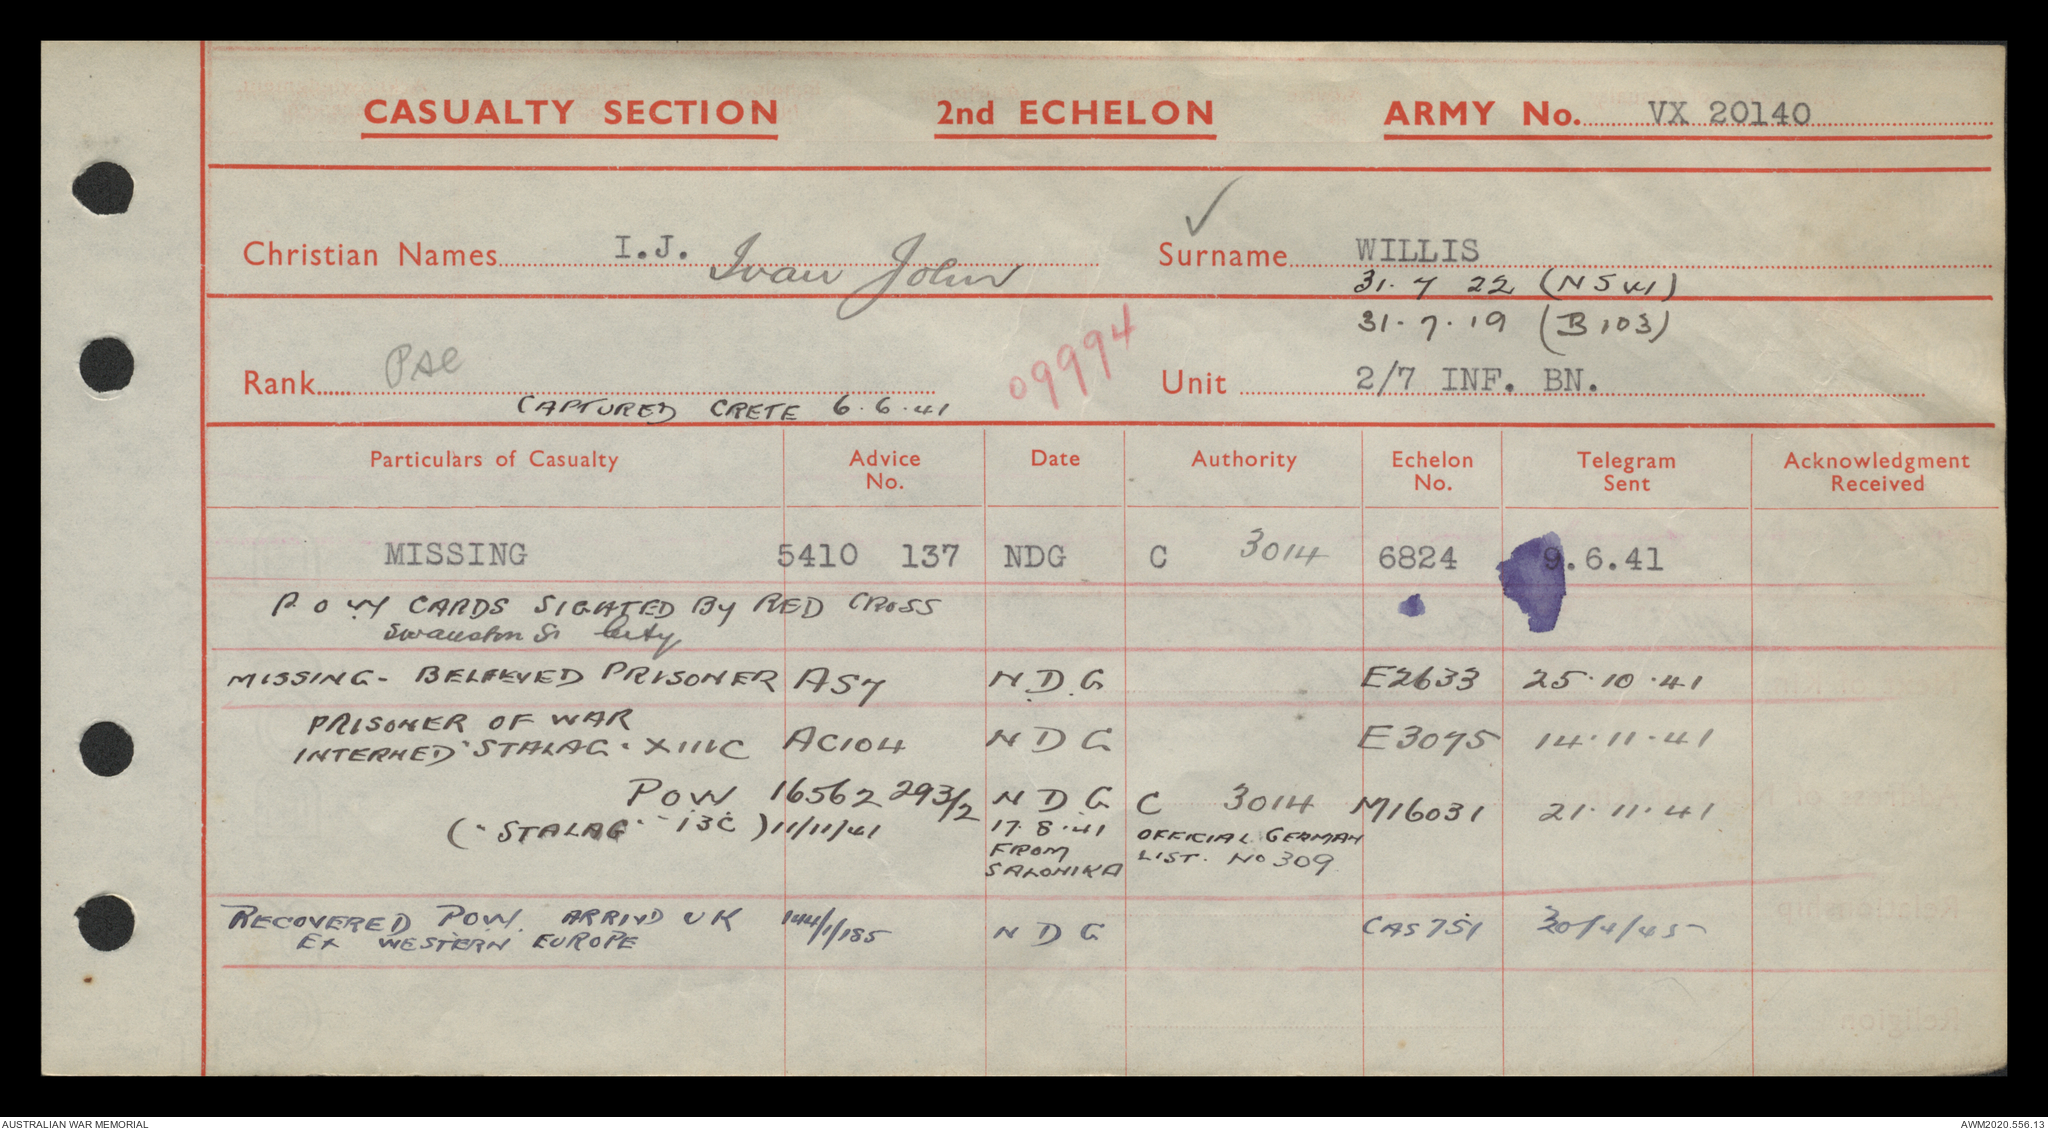 CASUALTY SECTION 2nd ECHELON ARMY No. VX 20140
Christian Names I.J. Ivan John Surname WILLIS
31. 7 22 (NSW)
31. 7. 19 (B103)
Rank Pte 09994 Unit 2/7 INF. BN.
CAPTURED CRETE 6.6.41
Particulars of Casualty Advice No. Date Authority Echelon No. Telegram Sent Acknowledgment Received
MISSING 5410 137 NDG C 3014 6824 9.6.41
P O W CARDS SIGHTED By RED CROSS
Swanston St City
MISSING - BELIEVED PRISONER AS7 N.D.G E2633 25.10.41
PRISONER OF WAR
INTERNED "STALAG" XIIIC AC104 N D G E3075 14.11.41
POW 16562 293/2 N D G C 3014 M16031 21.11.41
("STALAG" 13C) 11/11/41 17.8.41 OFFICIAL GERMAN
FROM LIST. No 309
SALONIKA
RECOVERED POW. ARRIVD UK 144/1/185 N D G CAS751 30/4/45
EX WESTERN EUROPE
AUSTRALIAN WAR MEMORIAL AWM2020.556.13